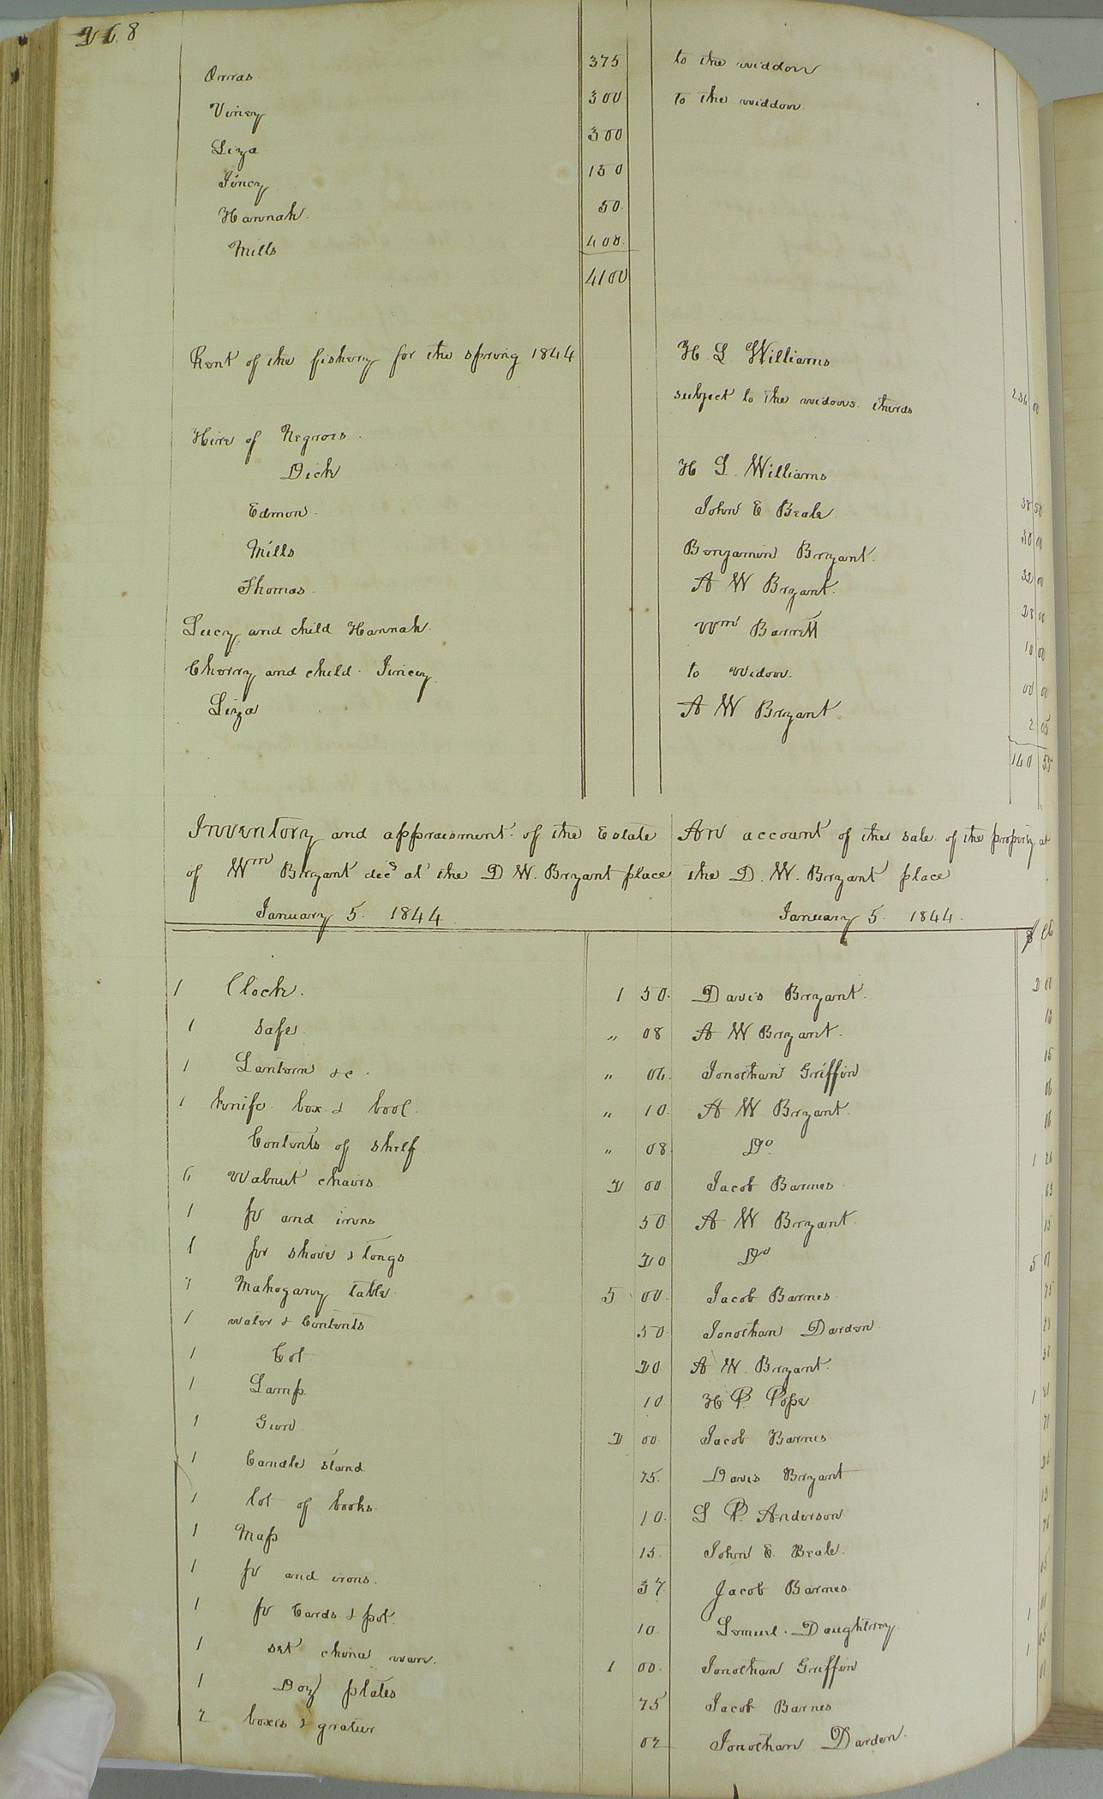 268
Orras 375 to the widdow
Viney 300 to the widdow
Liza 300
Jincy 150
Hannah. 50
Mills 400
4100
Rent of the fishery for the spring 1844 H L Williams
subject to the widows thirds
Hire of Negroes.
Dick H L Williams
Edmon John E Beale 50
Mills Benjamin Bryant.
Thomas A W Bryant.
Lucy and child Hannah. Wm Barrett
Cherry and child. Jincey to Widow. 00 00
Liza A W Bryant 2 05
140 55
Inventory and appraisment of the Estate
of Wm Bryant decd at the D W. Bryant place
January 5. 1844
An account of the sale of the propiry at
the D. W. Bryant place
January 5. 1844.
1 Clock. 1 50. Davis Bryant. 2 00
1 safe " 08 A W Bryant.
1 Lantern &c. " 06. Jonothan Griffin
1 Knife box & bool. " 10. A W Bryant.
Contents of shelf " 08 Do
6 Walnut chairs 2 00 Jacob Barnes
1 pr and irons 50 A W Bryant.
1 pr shove & tongs 20 Do
1 Mahogany table 5 00 Jacob Barnes
1 water & Contents 50 Jonothan Darden
1 Cot 20 A W. Bryant.
1 Lamp 10 H P. Pope
1 Gun 2 00 Jacob Barnes
1 Candle stand 75. Davis Bryant
1 lot of books 10. S P. Anderson
1 Map 15. John E. Beale.
1 pr and irons. 37. Jacob Barnes
1 pr Cards & pot. 10 Lemuel. Daughtrey
1 set china ware. 1 00. Jonothan Griffin
1 Doz plates 75 Jacob Barnes
2 boxes & grater 02 Jonothan Darden.